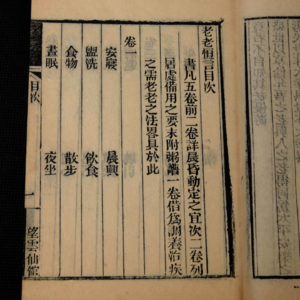 老老恒言目次
書凡五卷前二卷詳晨昏動定之宜次二卷列
居處備用之要末附粥譜一卷借為調養治疾
之需老老之法畧具於此
卷一
安寢 晨興
盥洗 飲食
食物 散步
晝眠 夜坐
目次
望雲仙館